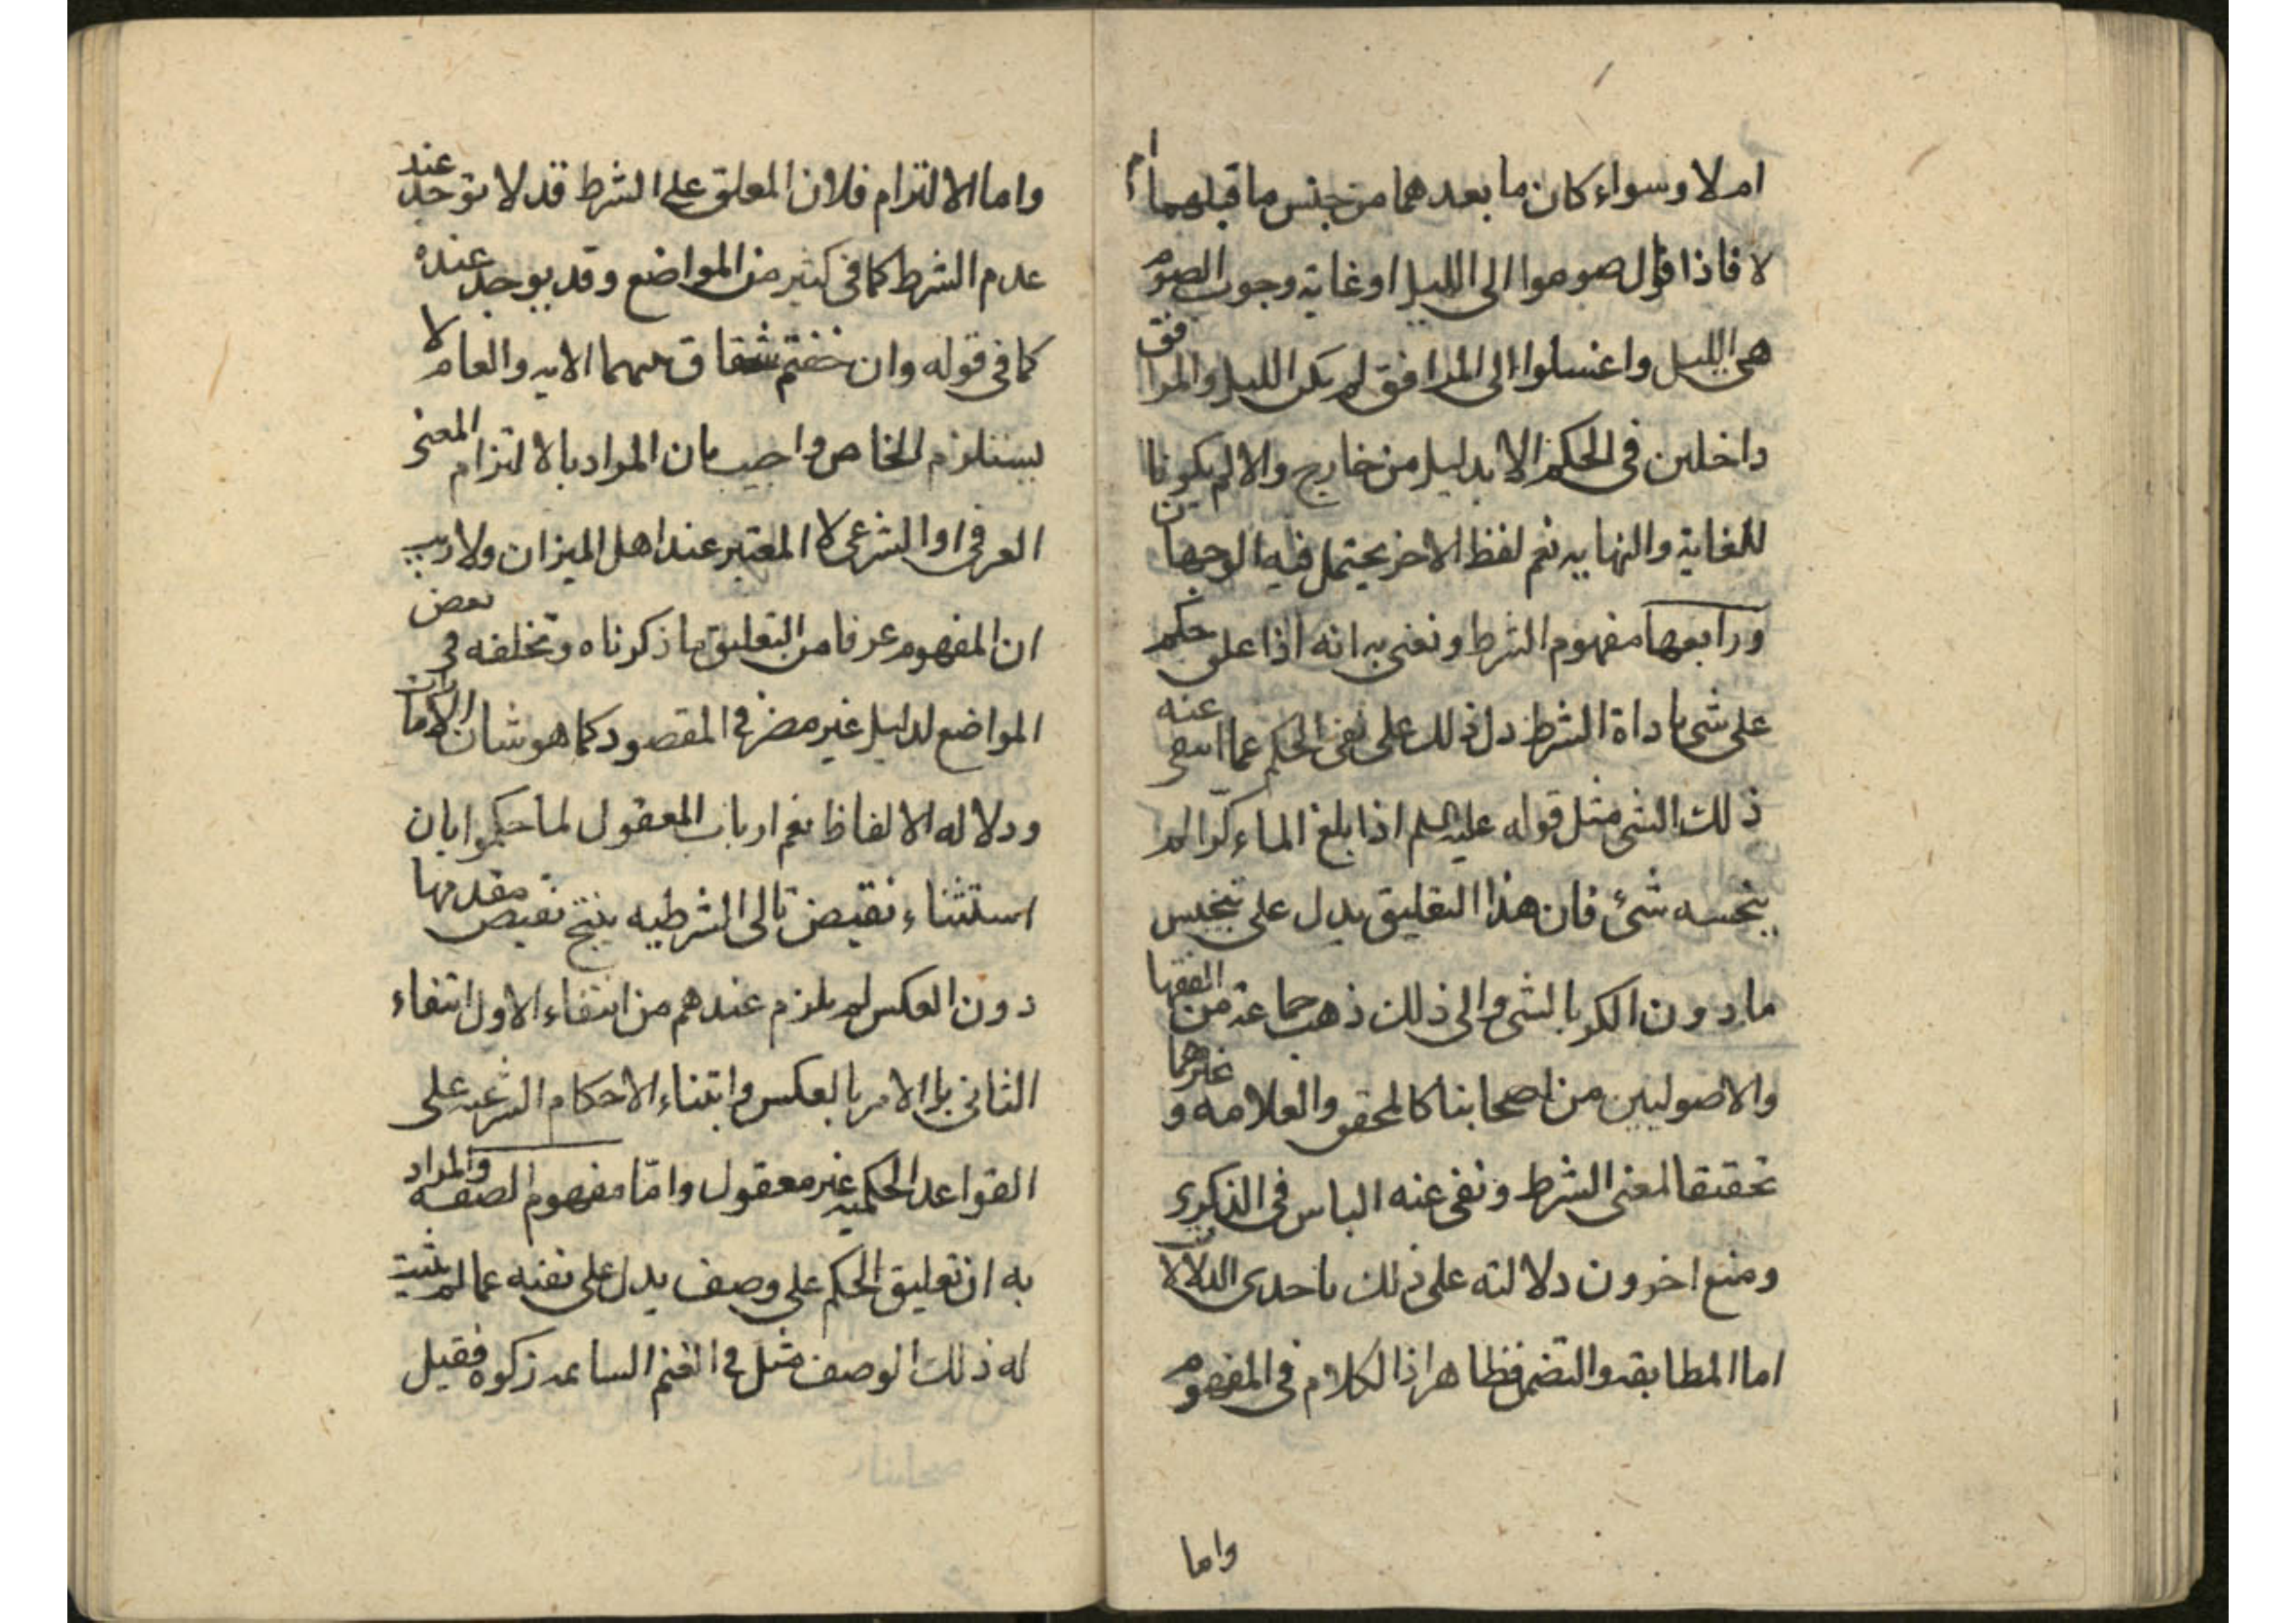 ام لا وسواء كان ما بعدهما من جنس ما قبلهما ام
لا فاذا قال صوموا الى الليل او غاية وجوب الصوم
هى الليل واغسلوا الى المرافق لم يكن الليل والمرافق
داخلين فى الحكم الا بدليل من خارج والا لم يكونا
للغاية والنهايه نعم لفظ الاخر يحتمل فيه الوجهان
ورابعها مفهوم الشرط ونعنى به انه اذا علق حكم
على شى باداة الشرط دل ذلك على نفى الحكم عما انتفى عنه
ذلك الشى مثل قوله عليه السلم اذا بلغ الماء كرّا لم
ينجسه شئ فان هذا التعليق يدل على تنجيس
ما دون الكر بالشى والى ذلك ذهب جماعة من الفقها
والاصوليين من اصحابنا كالمحقق والعلامه و غيرهما
تحقيقا لمعنى الشرط ونفى عنه الباس فى الذكرى
ومنع اخرون دلالته على ذلك باحدى الدلالات
اما المطابقه والتضمن فظاهر اذ الكلام فى المفهوم
واما
واما الالتزام فلان المعلق على الشرط قد لا يوجد عند
عدم الشرط كما فى كثير من المواضع وقد يوجد عنده
كما فى قوله وان خفتم شقاق بينهما الايه والعام لا
يستلزم الخاص واجيب بان المراد بالالتزام المعنى
العرفى او الشرعى لا المعتبر عند اهل الميزان ولا ريب
ان المفهوم عرفا من التعليق ما ذكرناه وتخلفه فى بعض
المواضع لدليل غير مضر فى المقصود كما هو شان الامارات
ودلاله الالفاظ نعم ارباب المعقول لما حكموا بان
استثناء نقيض تالى الشرطيه ينتج نقيض مقدمها
دون العكس لم يلزم عندهم من انتفاء الاول انتفاء
الثانى بل الامر بالعكس وابتناء الاحكام الشرعيه على
القواعد الحكميه غير معقول وامّا مفهوم الصفه والمراد
به ان تعليق الحكم على وصف يدل على نفيه عما لم يثبت
له ذلك الوصف مثل فى الغنم السائمه زكوه فقيل